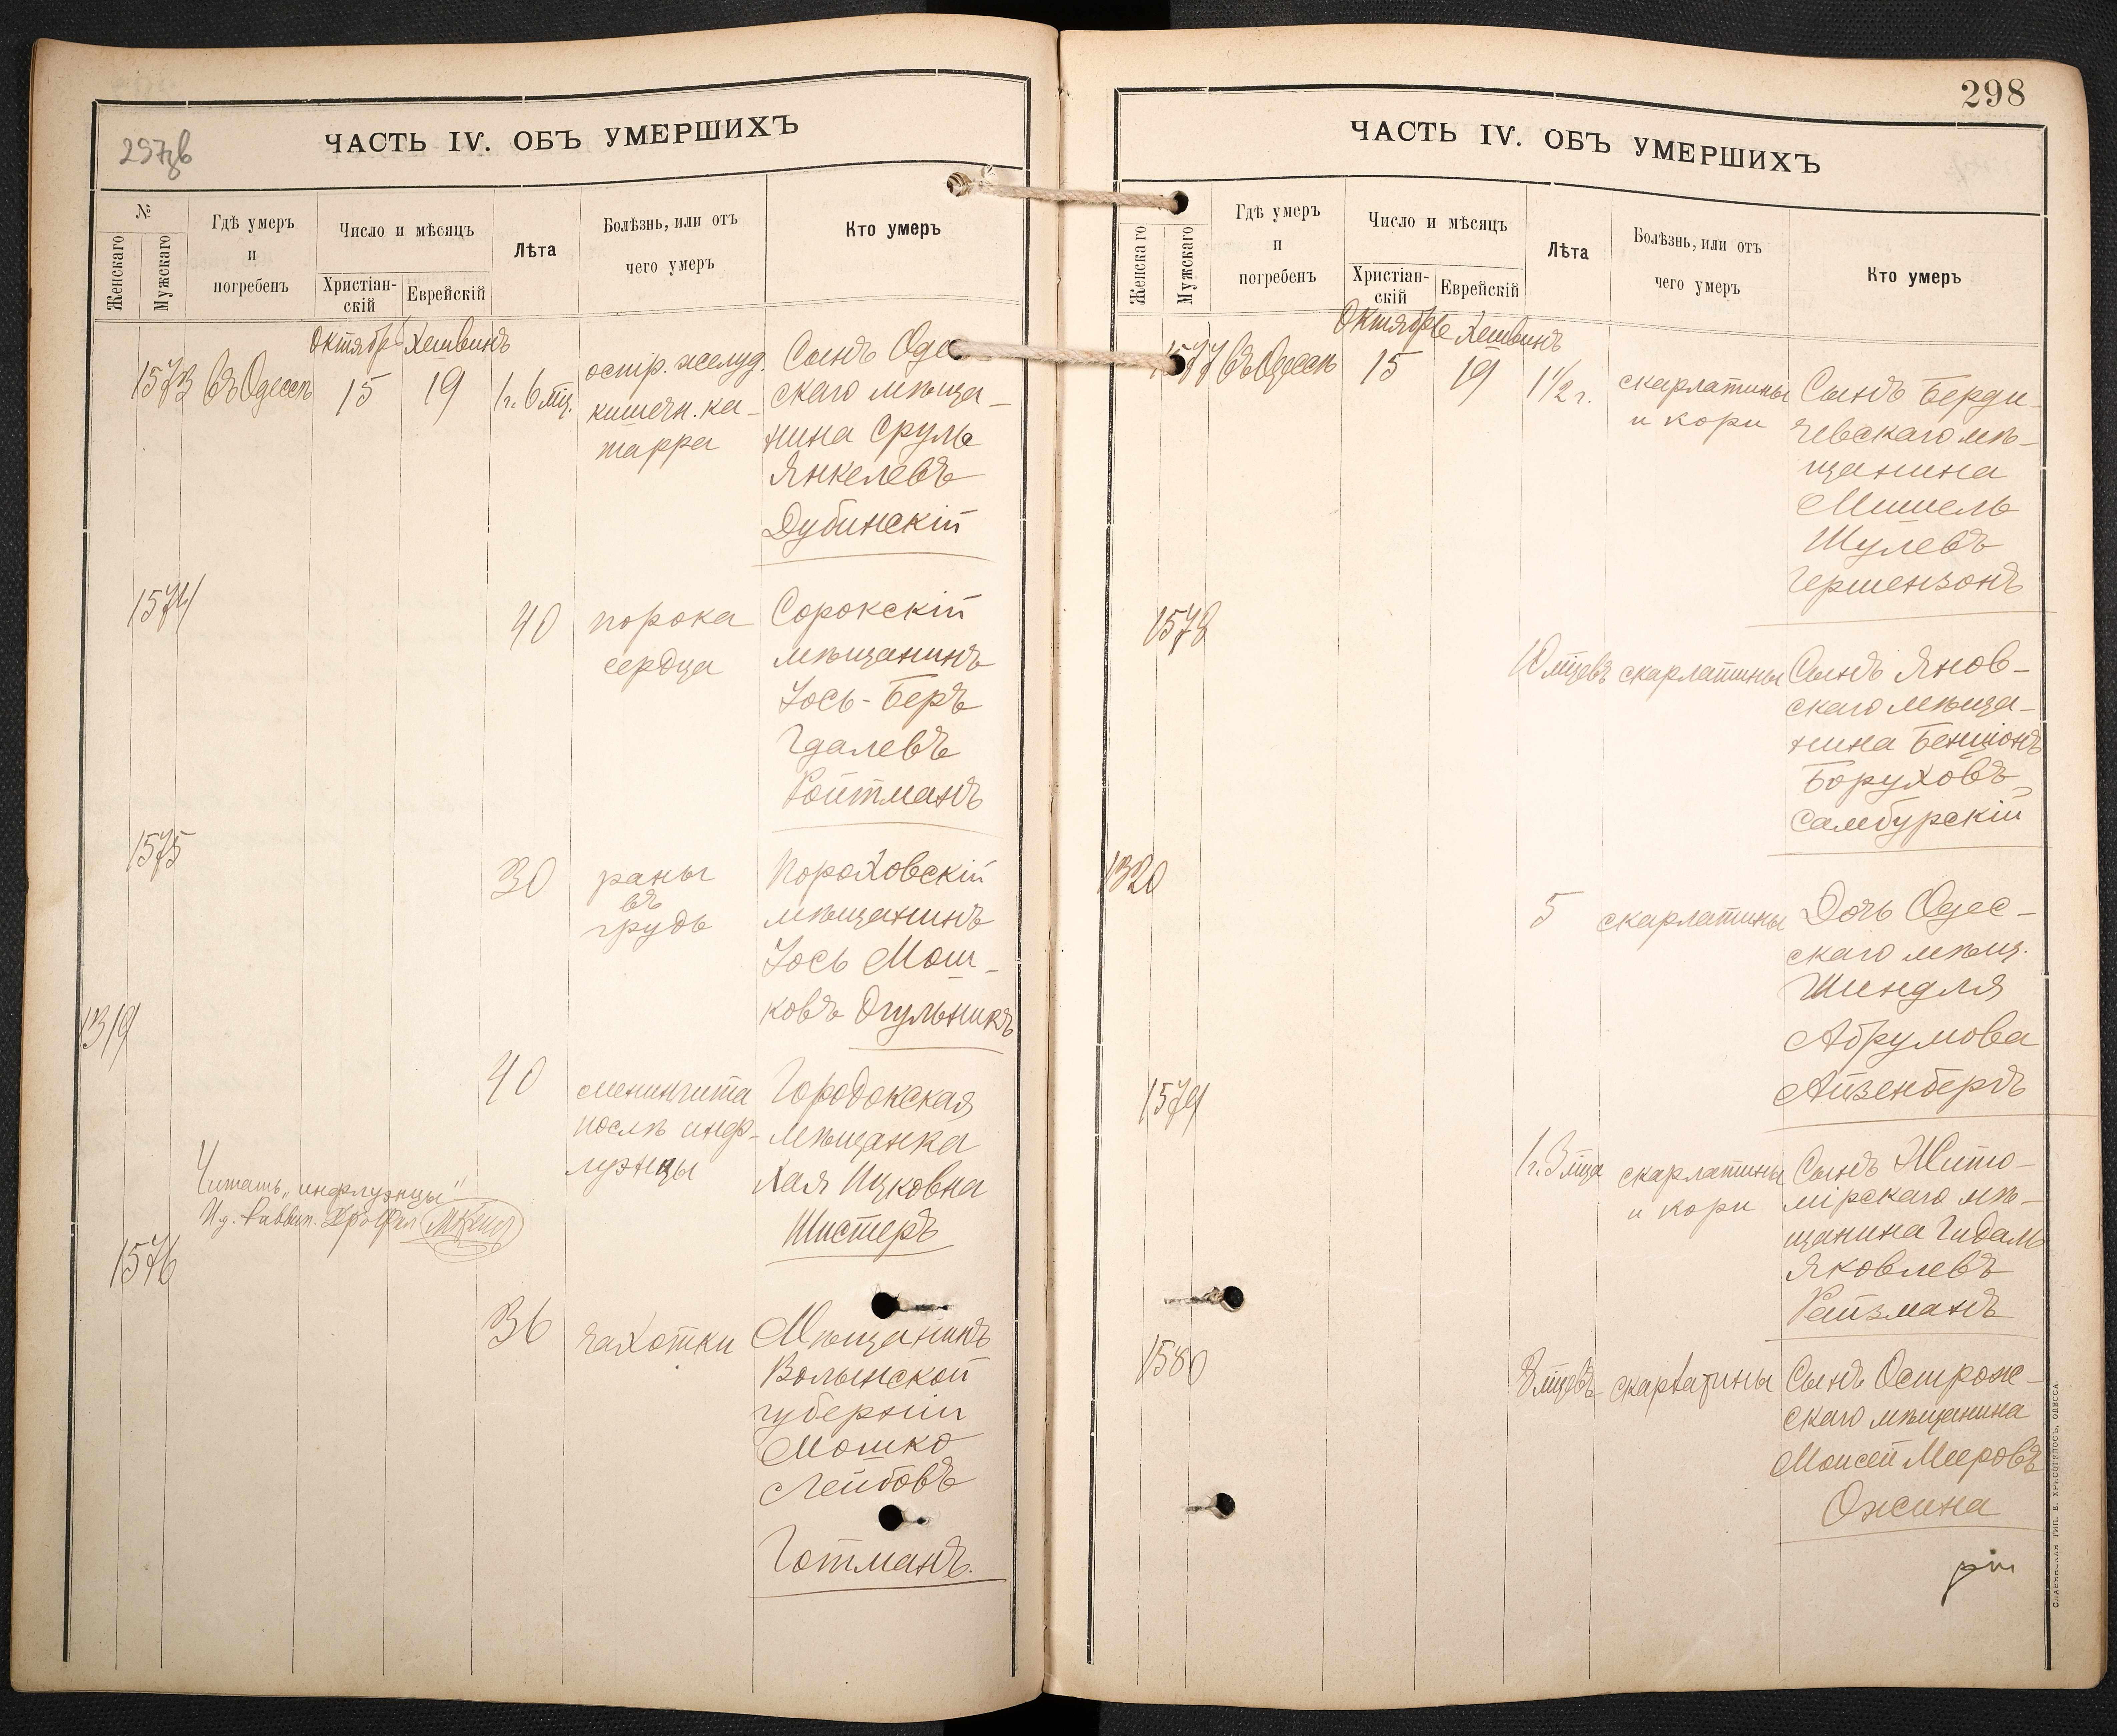 297зв
ЧАСТЬ IV. ОБЪ УМЕРШИХЪ
№
Женскаго
Мужскаго
Гдѣ умеръ
и
погребенъ
Число и мѣсяцъ
Христіан-
скій
Еврейскій
Лѣта
Болѣзнь, или отъ
чего умеръ
Кто умеръ
Октябрь Хешвинъ
1573 Въ Одессѣ 15 19 1 г. 6 мц.
остр. желуд.
кишечн. ка-
тарра
Сынъ Оде
скаго мѣща-
нина Сруль
Янкелевъ
Дубинскій
1574
40
порока
сердца
Сорокскій
мѣщанинъ
Іось-Беръ
Гдалевъ
Ройтманъ
1575
30
раны
въ
грудь
Пороховскій
мѣщанинъ
Іось Мош-
ковъ Огульникъ
1319
40
менингита
послѣ инф-
луэнцы
Городокская
мѣщанка
Хая Ицковна
Шистеръ
Читать „инфлуэнцы"
И.д. Раввин.
1576
36
чахотки
Мѣщанинъ
Волынской
губерніи
Мошко
Лейбовъ
Готманъ.
298
ЧАСТЬ IV. ОБЪ УМЕРШИХЪ
Женскаго
Мужскаго
Гдѣ умеръ
и
погребенъ
Число и мѣсяцъ
Христіан-
скій
Еврейскій
Лѣта
Болѣзнь, или отъ
чего умеръ
Кто умеръ
Октябрь Хешвинъ
1577 Въ Одессѣ 15 19 1 1/2 г.
скарлатины
и кори
Сынъ Берди-
чевскаго мѣ-
щанина
Мишель
Шулевъ
Гершензонъ
1578
10 мцевъ
скарлатины
Сынъ Янов-
скаго мѣща-
нина Бенціонъ
Боруховъ
Самбурскій
1320
5
скарлатины
Дочь Одес-
скаго мѣщ.
Шиндля
Абрумова
Айзенбергъ
1579
1 г. 3 мца
скарлатины
и кори
Сынъ Жито-
мірскаго мѣ-
щанина Гидаль
Яковлевъ
Рейзманъ
1580
8 мцевъ
скарлатины
Сынъ Острож-
скаго мѣщанина
Моисей Мееровъ
Ожина
СЛАВЯНСКАЯ ТИП. Е. ХРИСОГЕЛОСЪ, ОДЕССА.